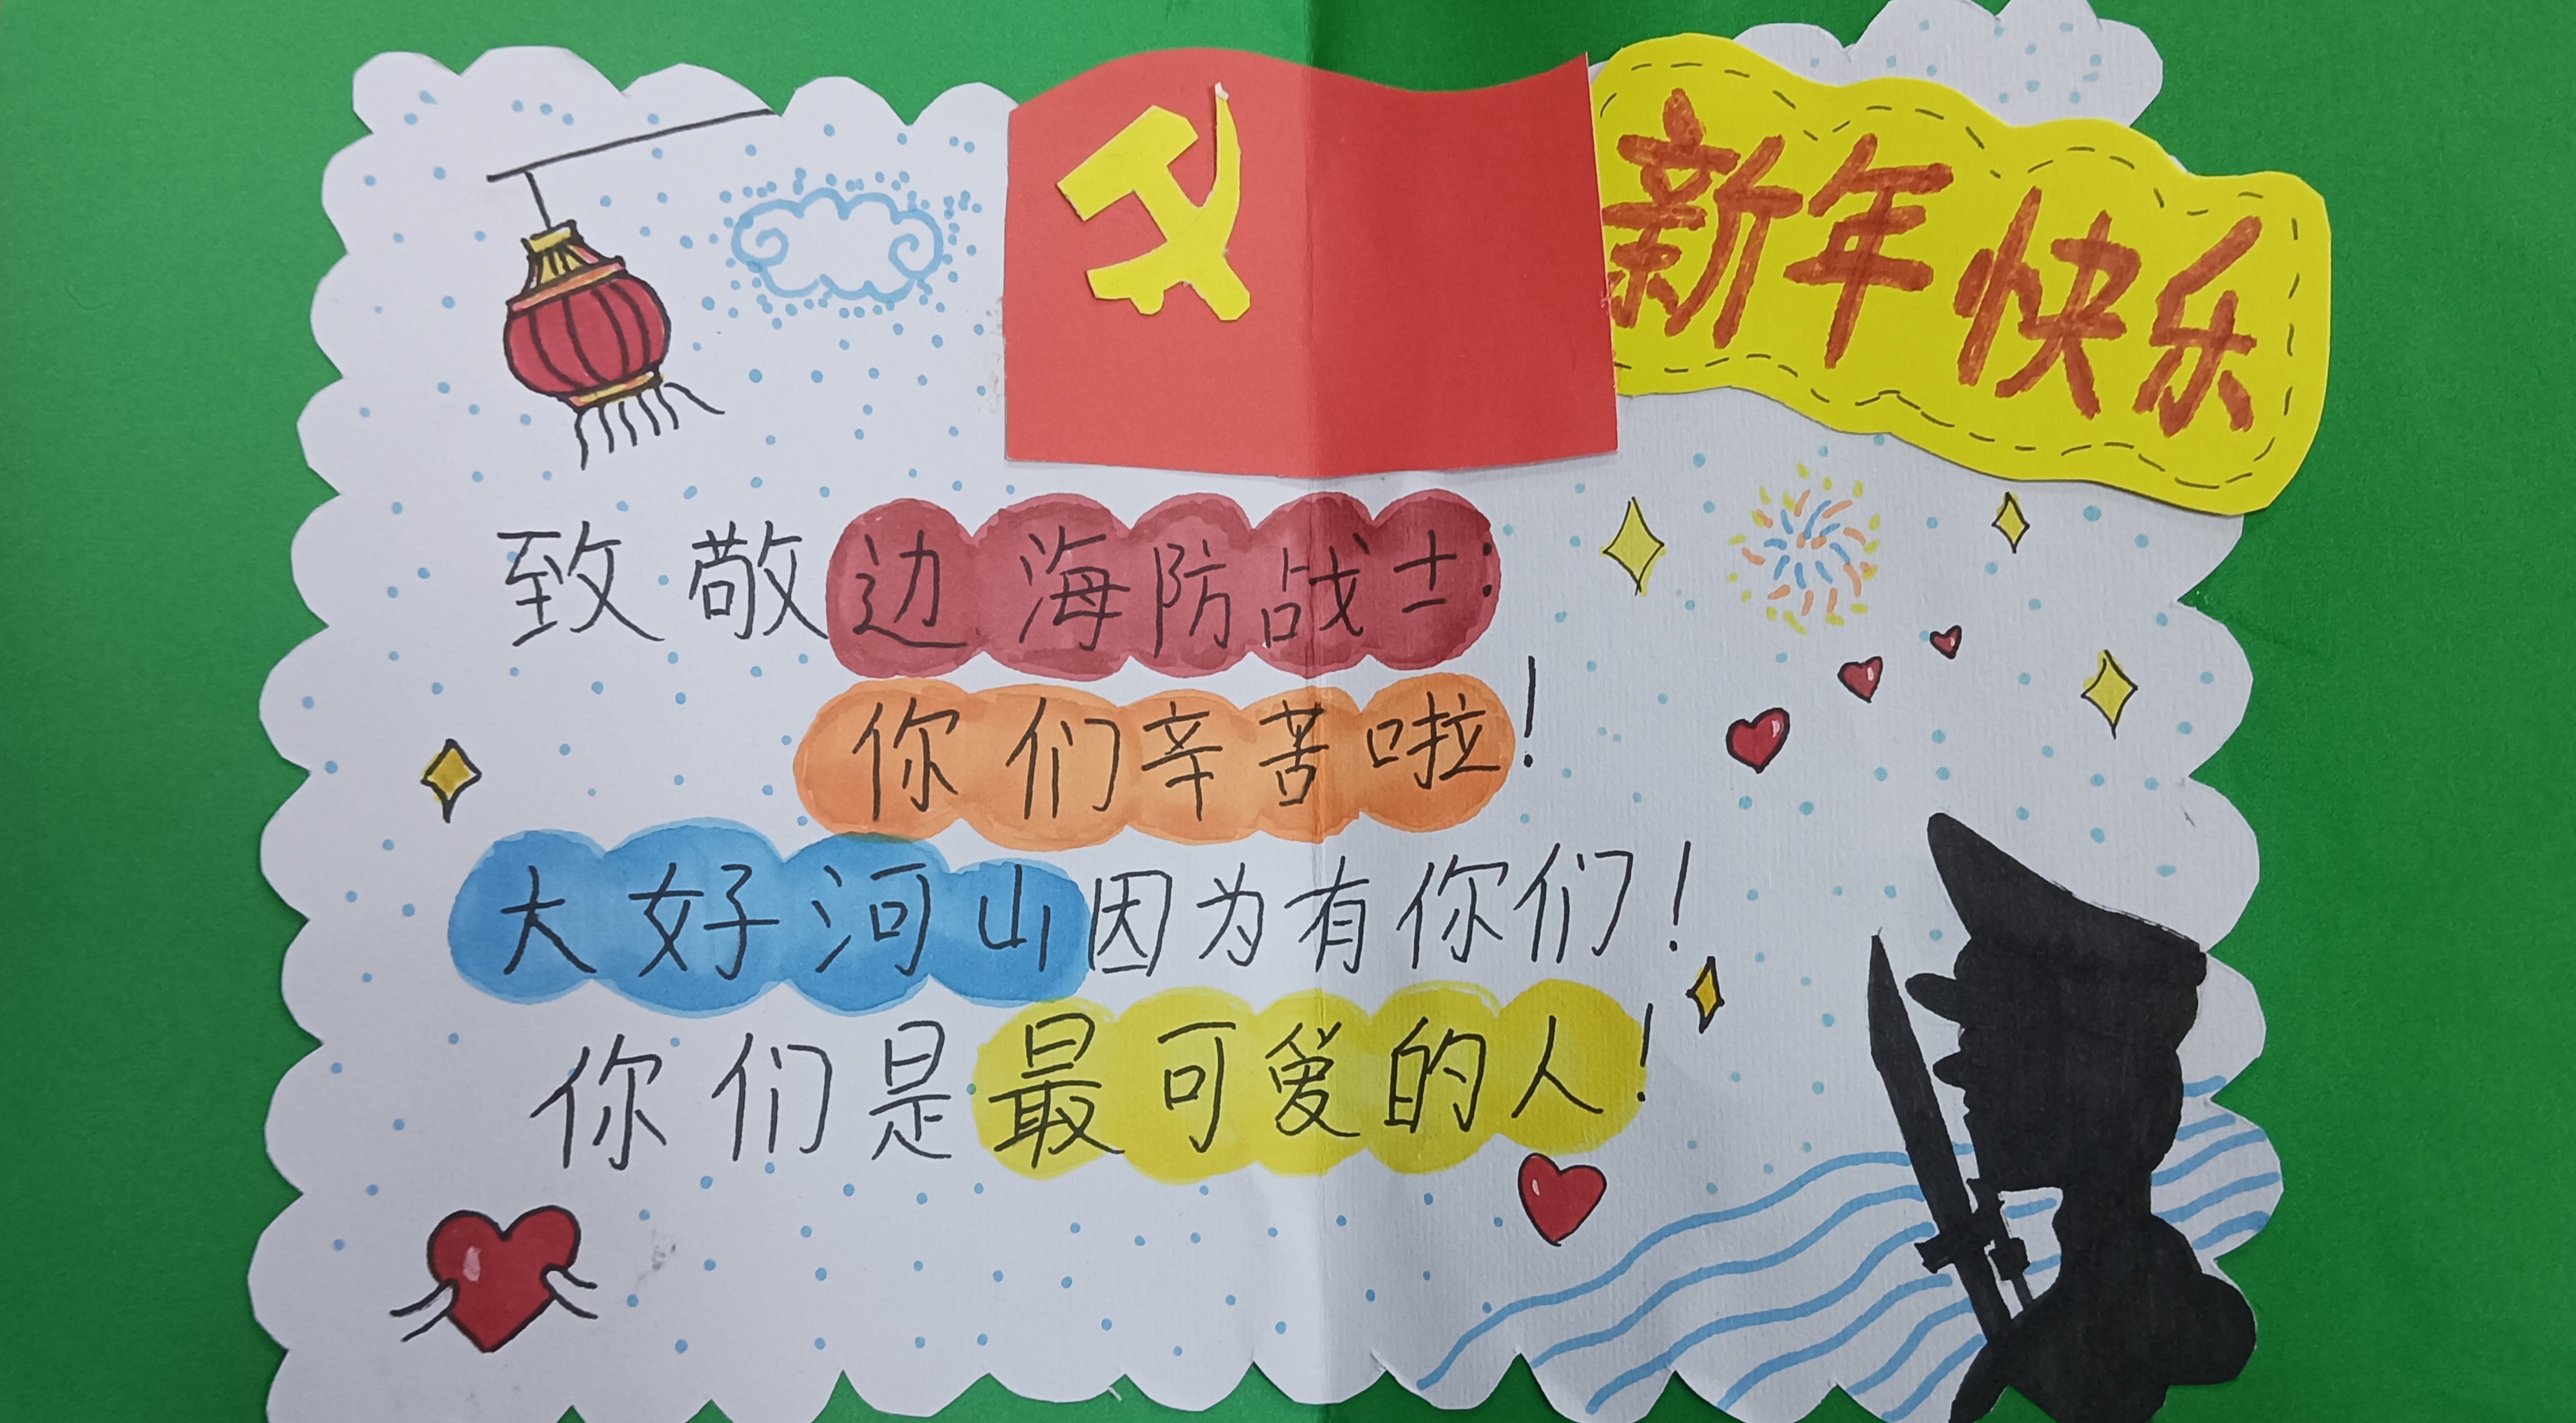 新年快乐
致敬边海防战士:
你们辛苦啦!
大好河山因为有你们!
你们是最可爱的人!